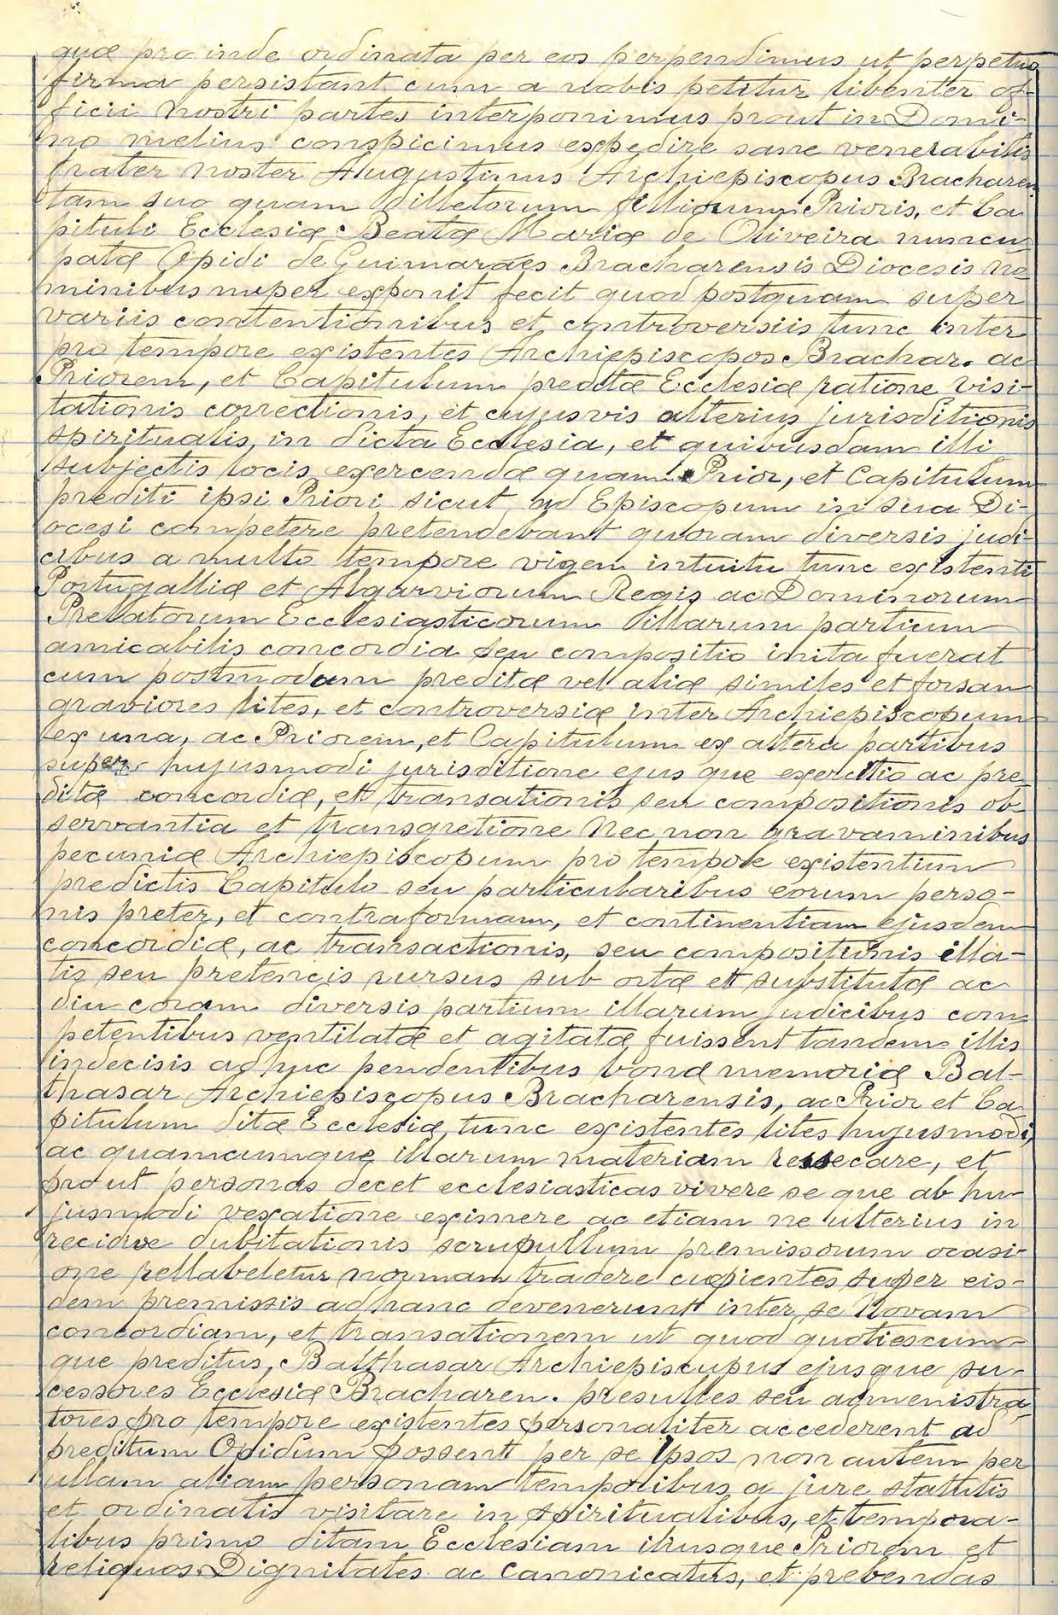 quæ pro inde ordinata per eos perpendimus ut perpetuo
firma persistant cum a nobis petitur libenter of-
ficii nostri partes interponimus prout in Domi-
no melius conspicimus expedire sane venerabilis
frater noster Augustinus Archiepiscopus Bracharen
tam suo quam dillctorum filliorum Prioris, et Ca
pituli Ecclesiæ Beatæ Mariæ de Oliveira nuncu
patæ Opidi de Guimarães Bracharensis Diocesis no
minibus nuper exponit fecit quod postquam super
variis contentionibus et controversiis tunc inter
pro tempore existentes Archiepiscopos Brachar. ac
Priorem, et Capitulum preditæ Ecclesiæ ratione visi-
tationis correctionis, et cujusvis alterius jurisditionis
spiritualis, in dicta Ecclesia, et quibusdam illi
subjectis locis exercendæ quam Prior, et Capitulum
prediti ipsi Priori sicut ad Episcopum in sua Di-
ocesi competere pretendebant quoram diversis judi-
cibus a multo tempore vigen intuitu tunc existenti
Portugalliæ et Algarviorum Regis ac Dominorum
Prellatorum Ecclesiasticorum illarum partium
amicabilis concordia seu compositio inita fuerat
cum postmodum preditæ vel aliæ similes et forsan
graviores lites, et controversiæ inter Archiepiscopum
ex una, ac Priorem, et Capitulum ex altera partibus
super hujusmodi jurisditione ejus que exercitio ac pre
ditæ concordiæ, et transationis seu compositionis ob-
servantia et transgretione Nec non gravaminibus
pecuniæ Archiepiscopum pro tempore existentium
predictis Capitulo seu particularibus eorum perso-
nis preter, et contraformam, et continentiam ejusdem
concordiæ, ac transactionis, seu compositionis illa-
tis seu pretencis rursus sub ortæ et substitutæ ac
diu coram diversis partium illarum judicibus com
petentibus ventilatæ et agitatæ fuissent tandem illis
indecisis ad huc pendentibus bonæ memoriæ Bal-
thasar Archiepiscopus Bracharensis, ac Prior et Ca
pitulum ditæ Ecclesiæ, tunc existentes lites hujusmodi,
ac quamcumque illarum materiam ressecare, et
prout personas decet ecclesiasticas vivere se que ab hu-
jusmodi vexatione eximere ac etiam ne ulterius in
recidive dubitationis scrupullum premissorum ocasi-
one rellabeletur normam tradere cupientes super eis-
dem premissis ad hanc devenerunt inter se Novam
concordiam, et transationem ut quod quotiescum-
que preditus, Balthasar Archiepiscupus ejusque su-
cessores Ecclesiæ Bracharen. presulles seu admenistra-
tores pro tempore existentes personaliter accederent ad
preditum Opidum possent per se Ipsos non autem per
ullam aliam personam temporibus a jure stattutis
et ordinatis visitare in spiritualibus, et tempora-
libus primo ditam Ecclesiam illius que Priorem et
reliquos Dignitates ac Canonicatus, et prebendas